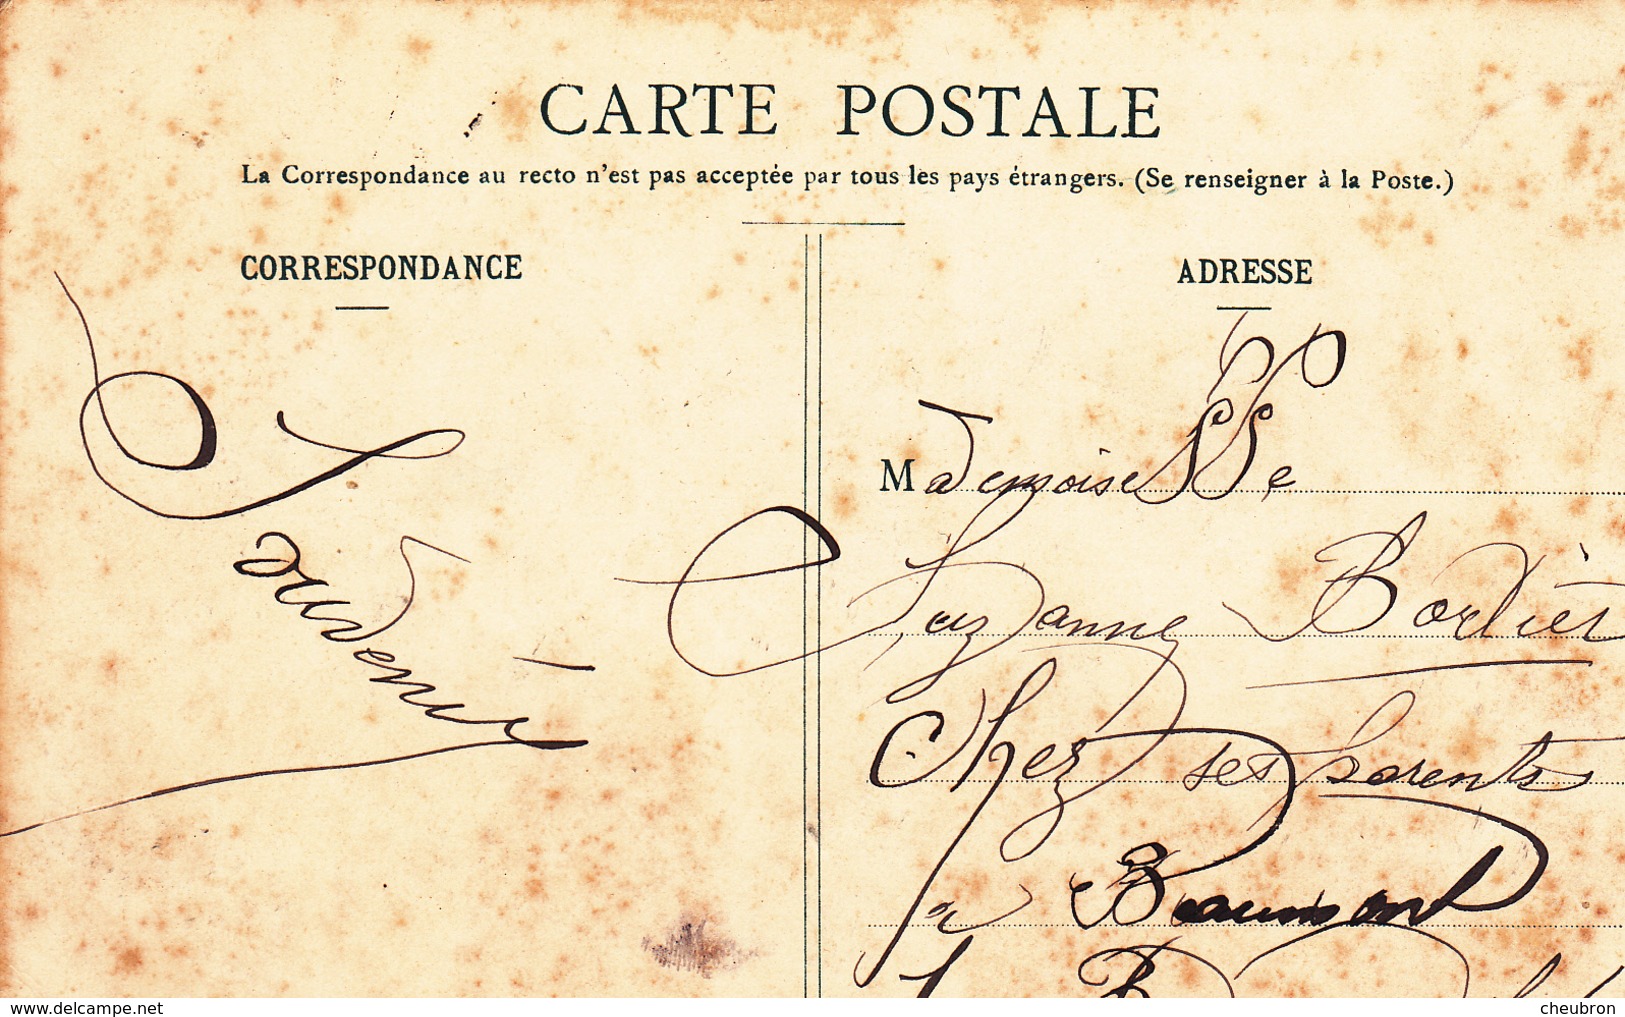 CARTE POSTALE
La Correspondance au recto n'est pas acceptée par tous les pays étrangers. (Se renseigner à la Poste.)
CORRESPONDANCE
Souvenir
ADRESSE
Mademoiselle
Suzanne Bordier
Chez ses parents
à Beaumont
www.delcampe.net
cheubron